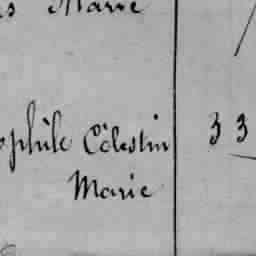 Marie
ophile Célestin 33
Marie